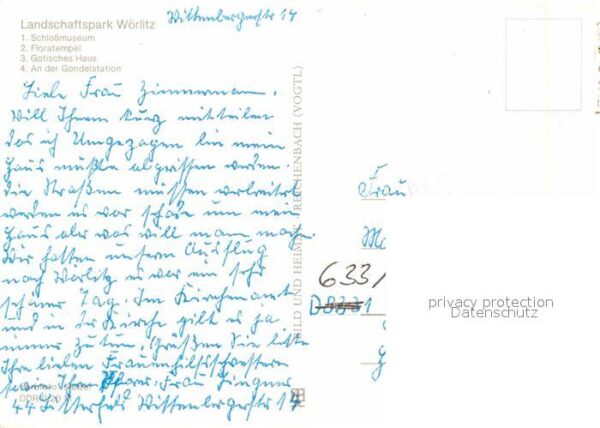 Landschaftspark Wörlitz
1. Schloßmuseum
2. Floratempel
3. Gotisches Haus
4. An der Gondelstation
Wittenbergerstr 14
Liebe Frau Zimmermann.
Will Ihnen kurz mitteilen
das ich Umgezogen bin mein
Haus mußte abgrissen werden.
die Straßen müssen verbreitert
werden es war schade um mein
Haus aber was will man machen.
Wir hatten unsern Ausflug
nach Wörlitz es war ein sehr
schöner Tag. Im Kirchenamt
und in der Kirche gibt es ja
immer zu tun. Grüßen Sie bitte
Ihre lieben Frauenhilfsschwestern
Ihren Frau
44 Bitterfeld Wittenbergerstr 14
BILD UND HEIMAT REICHENBACH (VOGTL)
Frau
633
privacy protection
Datenschutz